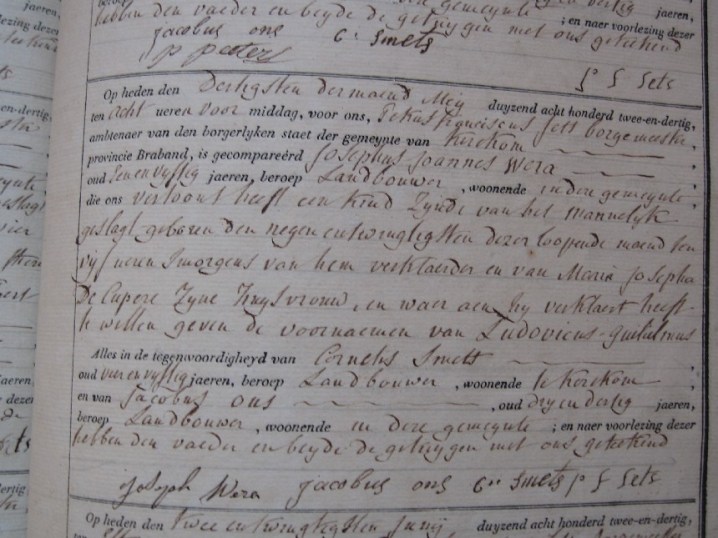 jaeren,
hebben den vaeder en beyde de getuygen met ons geteekend
; en naer voorlezing dezer
jacobus ons Cs Smets
P peeters
P F Sets
Op heden den Dertigsten der maend Meij duyzend acht honderd twee-en-dertig,
ten acht ueren voor middag, voor ons, Petrus franciscus Sets borgemeester
ambtenaer van den borgerlyken staet der gemeynte van Kerckom
provincie Braband, is gecompareérd Josephus-Joannes Wera
oud jaeren, beroep Landbouwer , woonende in dese gemeynte
die ons vertoont heeft een kind Zynde van het mannelyk
geslagt geboren den negen entwingtigsten dezer loopende maend ten
vyf ueren Smorgens van hem verklaerder en van Maria Josepha
De Cupere Zyne Huysvrouw, en waer aen hy verklaert heeft
te willen geven de voornaemen van Ludovicus-guilielmus
Alles in de tegenwoordigheyd van Cornelis Smets
oud vier en vyftig jaeren, beroep Landbouwer , woonende te Kerckom
en van Jacobus ons , oud dry en dertig jaeren,
beroep Landbouwer , woonende en dese gemeynte ; en naer voorlezing dezer
hebben den vaeder en beyde de getuygen met ons geteekend
Joseph Wera jacobus ons Cs Smets P F Sets
Op heden den twee entwingtigsten Junij duyzend acht honderd twee-en-dertig,